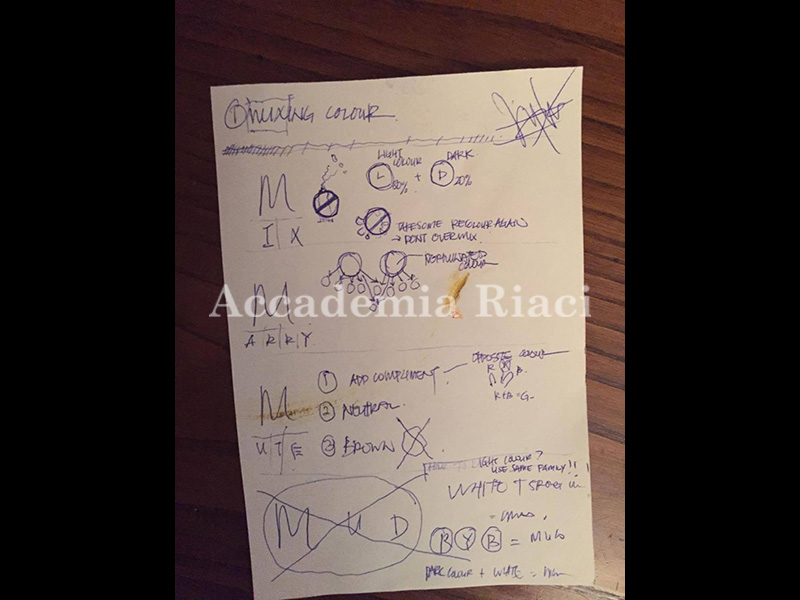 ① MIXING COLOUR
LIGHT COLOUR
DARK
M
L 80% + D 20%
I X
TAKE SOME RECOLOUR AGAIN
→ DONT OVERMIX
COLOUR
M
Accademia Riaci
A R R Y
OPPOSITE COLOUR
① ADD COMPLEMENT
R B
M
② NEUTRAL
U T E
③ BROWN
LIGHT COLOUR?
USE SAME FAMILY!!
WHITE
M U D
B Y B = MUD
DARK COLOUR + WHITE =